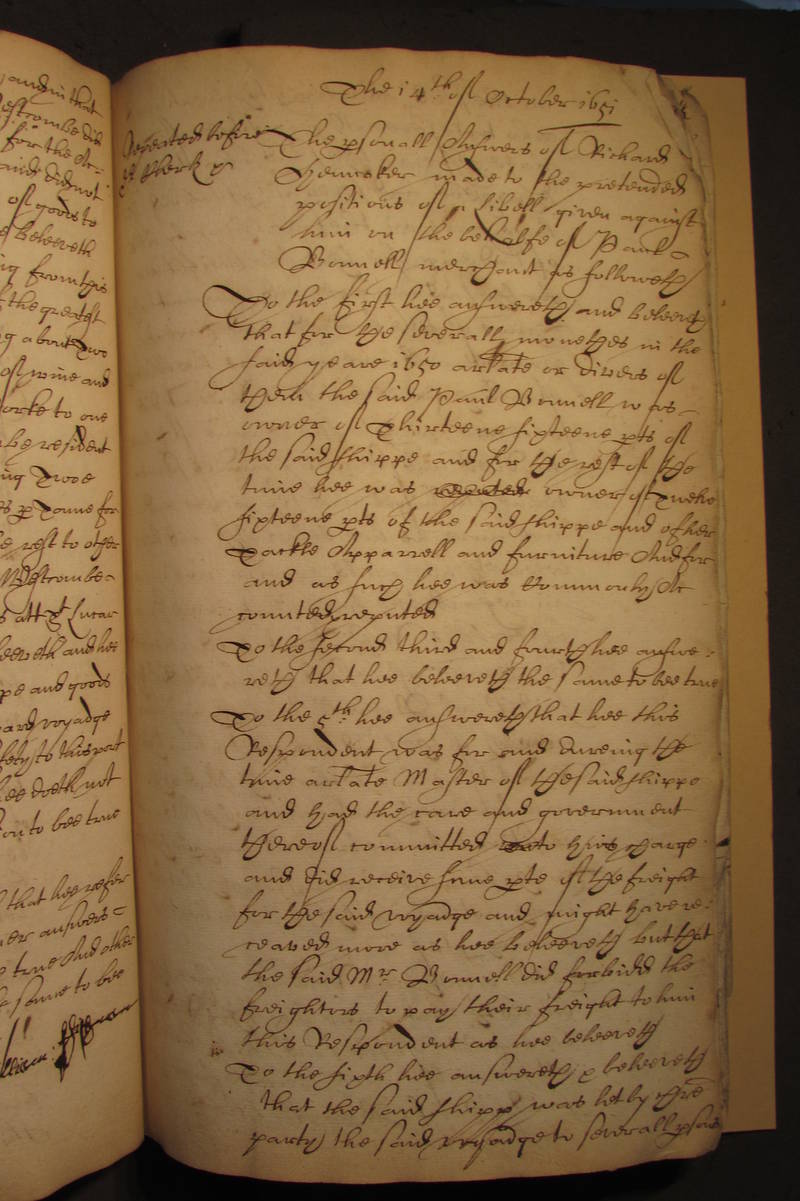 The 14th of October 1651
Repeated before
The psonall Answers of Richard
made to the pretended
positions of a Libell given against
him on the behalfe of Paul
Bonnell merchant as followeth
To the first hee answereth and beleeveth
that for the severall monethes in the
said yeare 1650 arlate or divers of
them the said Paul Bonnell was
owner of Thirteene sixteene pts of
the said shippe and for the rest of the
time hee was owner of Twelve
sixteene pts of the said shippe and of her
Tackle Apparrell and furniture And for
and as such hee was Commonly Ac
counted reputed
To the second third and fourth hee answe
reth that hee beleeveth the same to bee true
To the 5th hee answereth that hee this
Respondent was for and dureing the
time arlate Master of the said shippe
and had the care and government
thereof committed to his charge
and did receive some pte of the freight
for the said voyadge and might have re
ceaved more as hee beleeveth but that
the said Mr Bonnell did forbidd the
freightors to pay their freight to him
this Respondent as hee beleeveth
To the sixth hee answereth & beleeveth
that the said shipp was let by
party the said voyadge to severall psons
and in that
Westcombe did
for the Ar
said did not
of goods to
beleeveth
ing from this
the greatest
g about two
of wine and
to one
by resident
ing Twoe
for
rest to other
Westcombe
att St Lucar
beleeveth and hee
pe and goods
ard voyadge
to this port
hee doeth not
on to bee true
that hee refer
er answers
true And other
same to bee